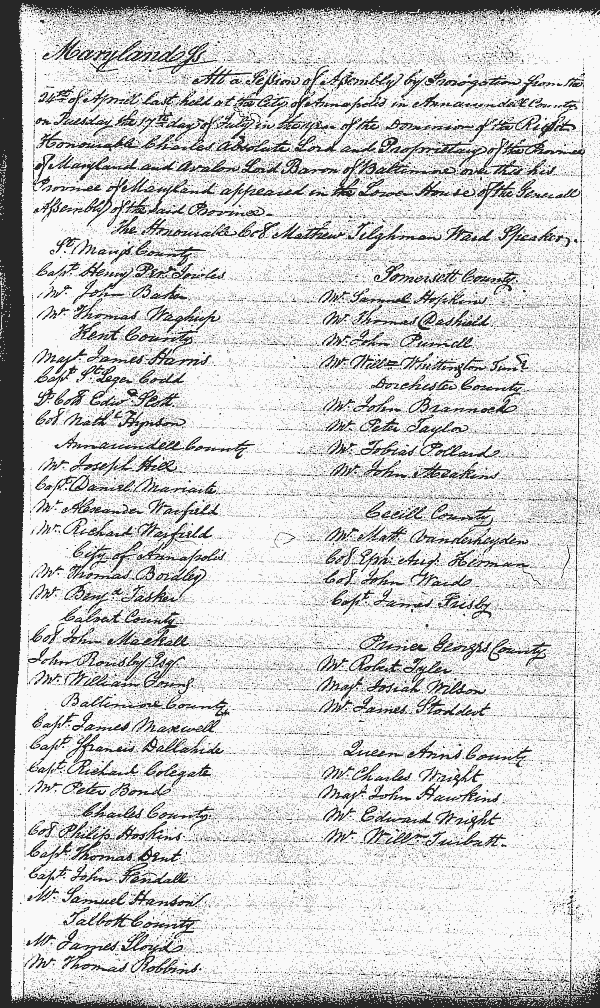 Maryland ss
Att a Session of Assembly by Prorogation from the
24th of April last held at the City of Annapolis in Annarundell County
on Tuesday the 17th day of July in the year of the Dominion of the Right
Honourable Charles Absolute Lord and Proprietary of the Province
of Maryland and Avalon Lord Baron of Baltimore over this his
Province of Maryland appeared in the Lower House of the Generall
Assembly of the said Province.
The Honourable Col Mathew Tilghman Ward Speaker.
St Marys County
Capt. Henry Peregr Jowles
Mr John Baker
Mr Thomas Waghup
Kent County
Majr James Harris
Capt. St Leger Codd
Lt Col Edwd Scott
Col Nathl Hynson
Annarundell County
Mr Joseph Hill
Capt Daniel Mariarte
Mr Alexander Warfield
Mr Richard Warfield
City of Annapolis
Mr Thomas Bordley
Mr Benja Tasker
Calvert County
Col John Mackall
John Rousby Esqr
Mr William Young
Baltimore County
Capt. James Maxwell
Capt. Ffrancis Dallahide
Capt. Richard Colegate
Mr Peter Bond
Charles County
Col Philip Hoskins
Capt. Thomas Dent
Capt. John Fendall
Mr Samuel Hanson
Talbott County
Mr James Lloyd
Mr Thomas Robbins
Somersett County
Mr Samuel Hopkins
Mr Thomas Dashield
Mr John Purnell
Mr Willm Whittington Junr
Dorchester County
Mr John Brannock
Mr Peter Taylor
Mr Tobias Pollard
Mr John Meakins
Cecill County
Mr Matt. Vanderheyden
Col Eph: Aug. Herman
Col John Ward
Capt. James Frisby
Prince Georges County
Mr Robert Tyler
Majr Josiah Wilson
Mr James Stoddert
Queen Ann's County
Mr Charles Wright
Majr John Hawkins
Mr Edward Wright
Mr Willm Turbutt